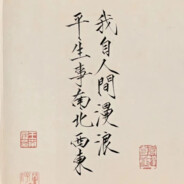 我自人間漫浪
平生事南北西東